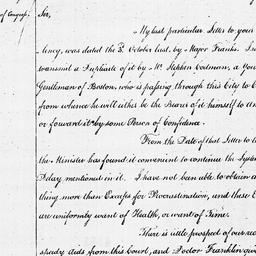 of congress.
Sir,
My last particular Letter to your
lency, was dated the 3d. October last, by Major Franks. I n
transmit a Duplicate of it by Mr. Stephen Codman, a You
Gentleman of Boston, who is passing through this City to C
from whence he will either be the Bearer of it himself to Am
or forward it by some Person of Confidence.
From the Date of that Letter to th
the Minister has found it convenient to continue the System
Delay, mentioned in it. I have not been able to obtain a
thing more than Excuses for Procrastination, and these E
are uniformly want of Health, or want of Time.
There is little prospect of our rec
speedy aids from this Court, and Doctor Franklin giv